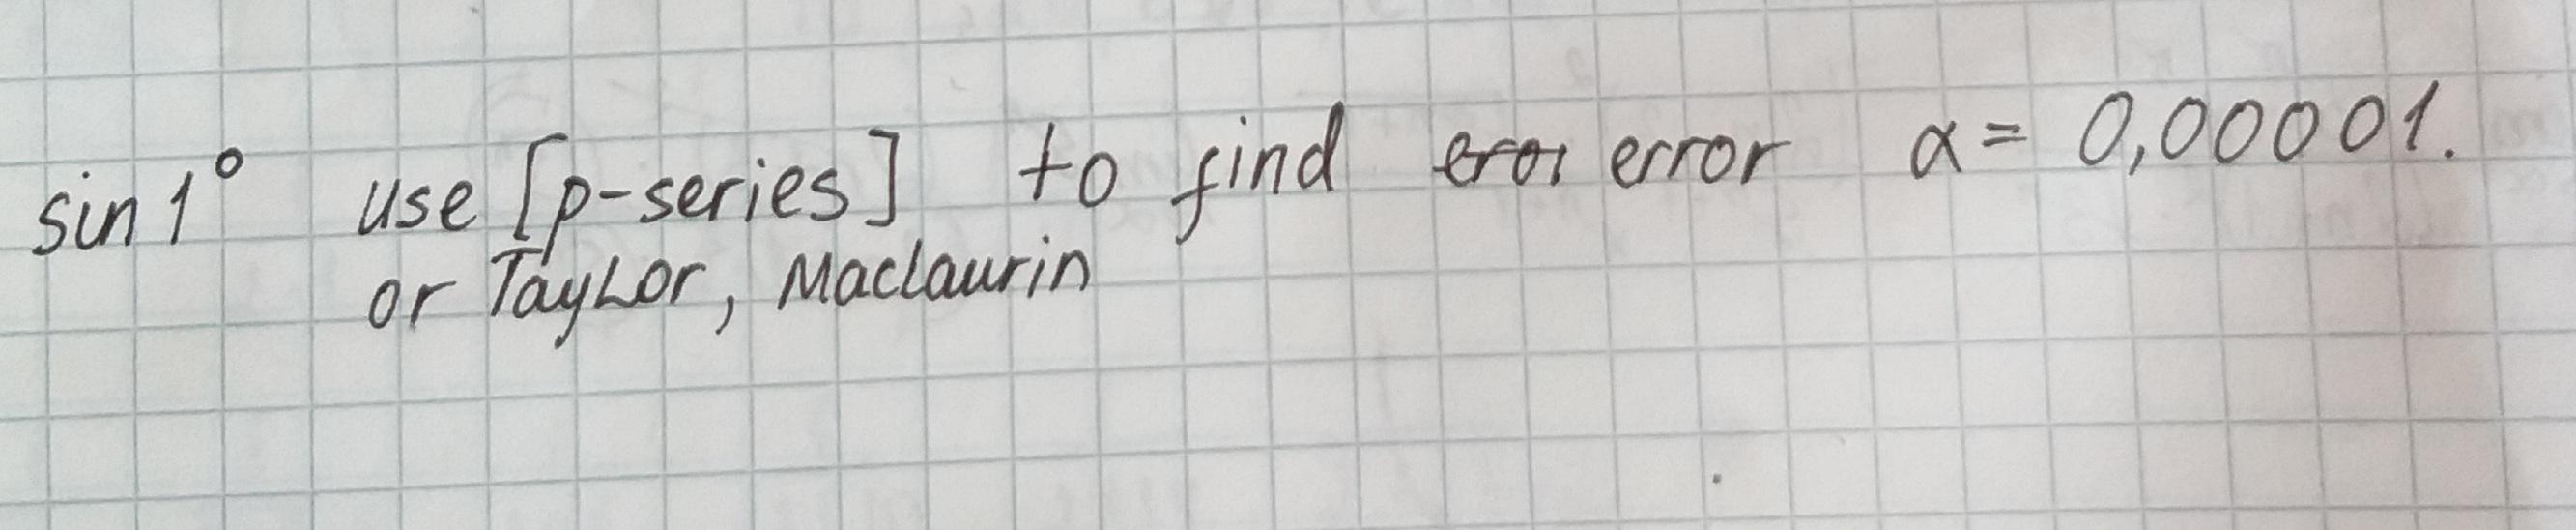 sin 1° use [p-series] to find error α = 0,00001.
or Taylor, Maclaurin